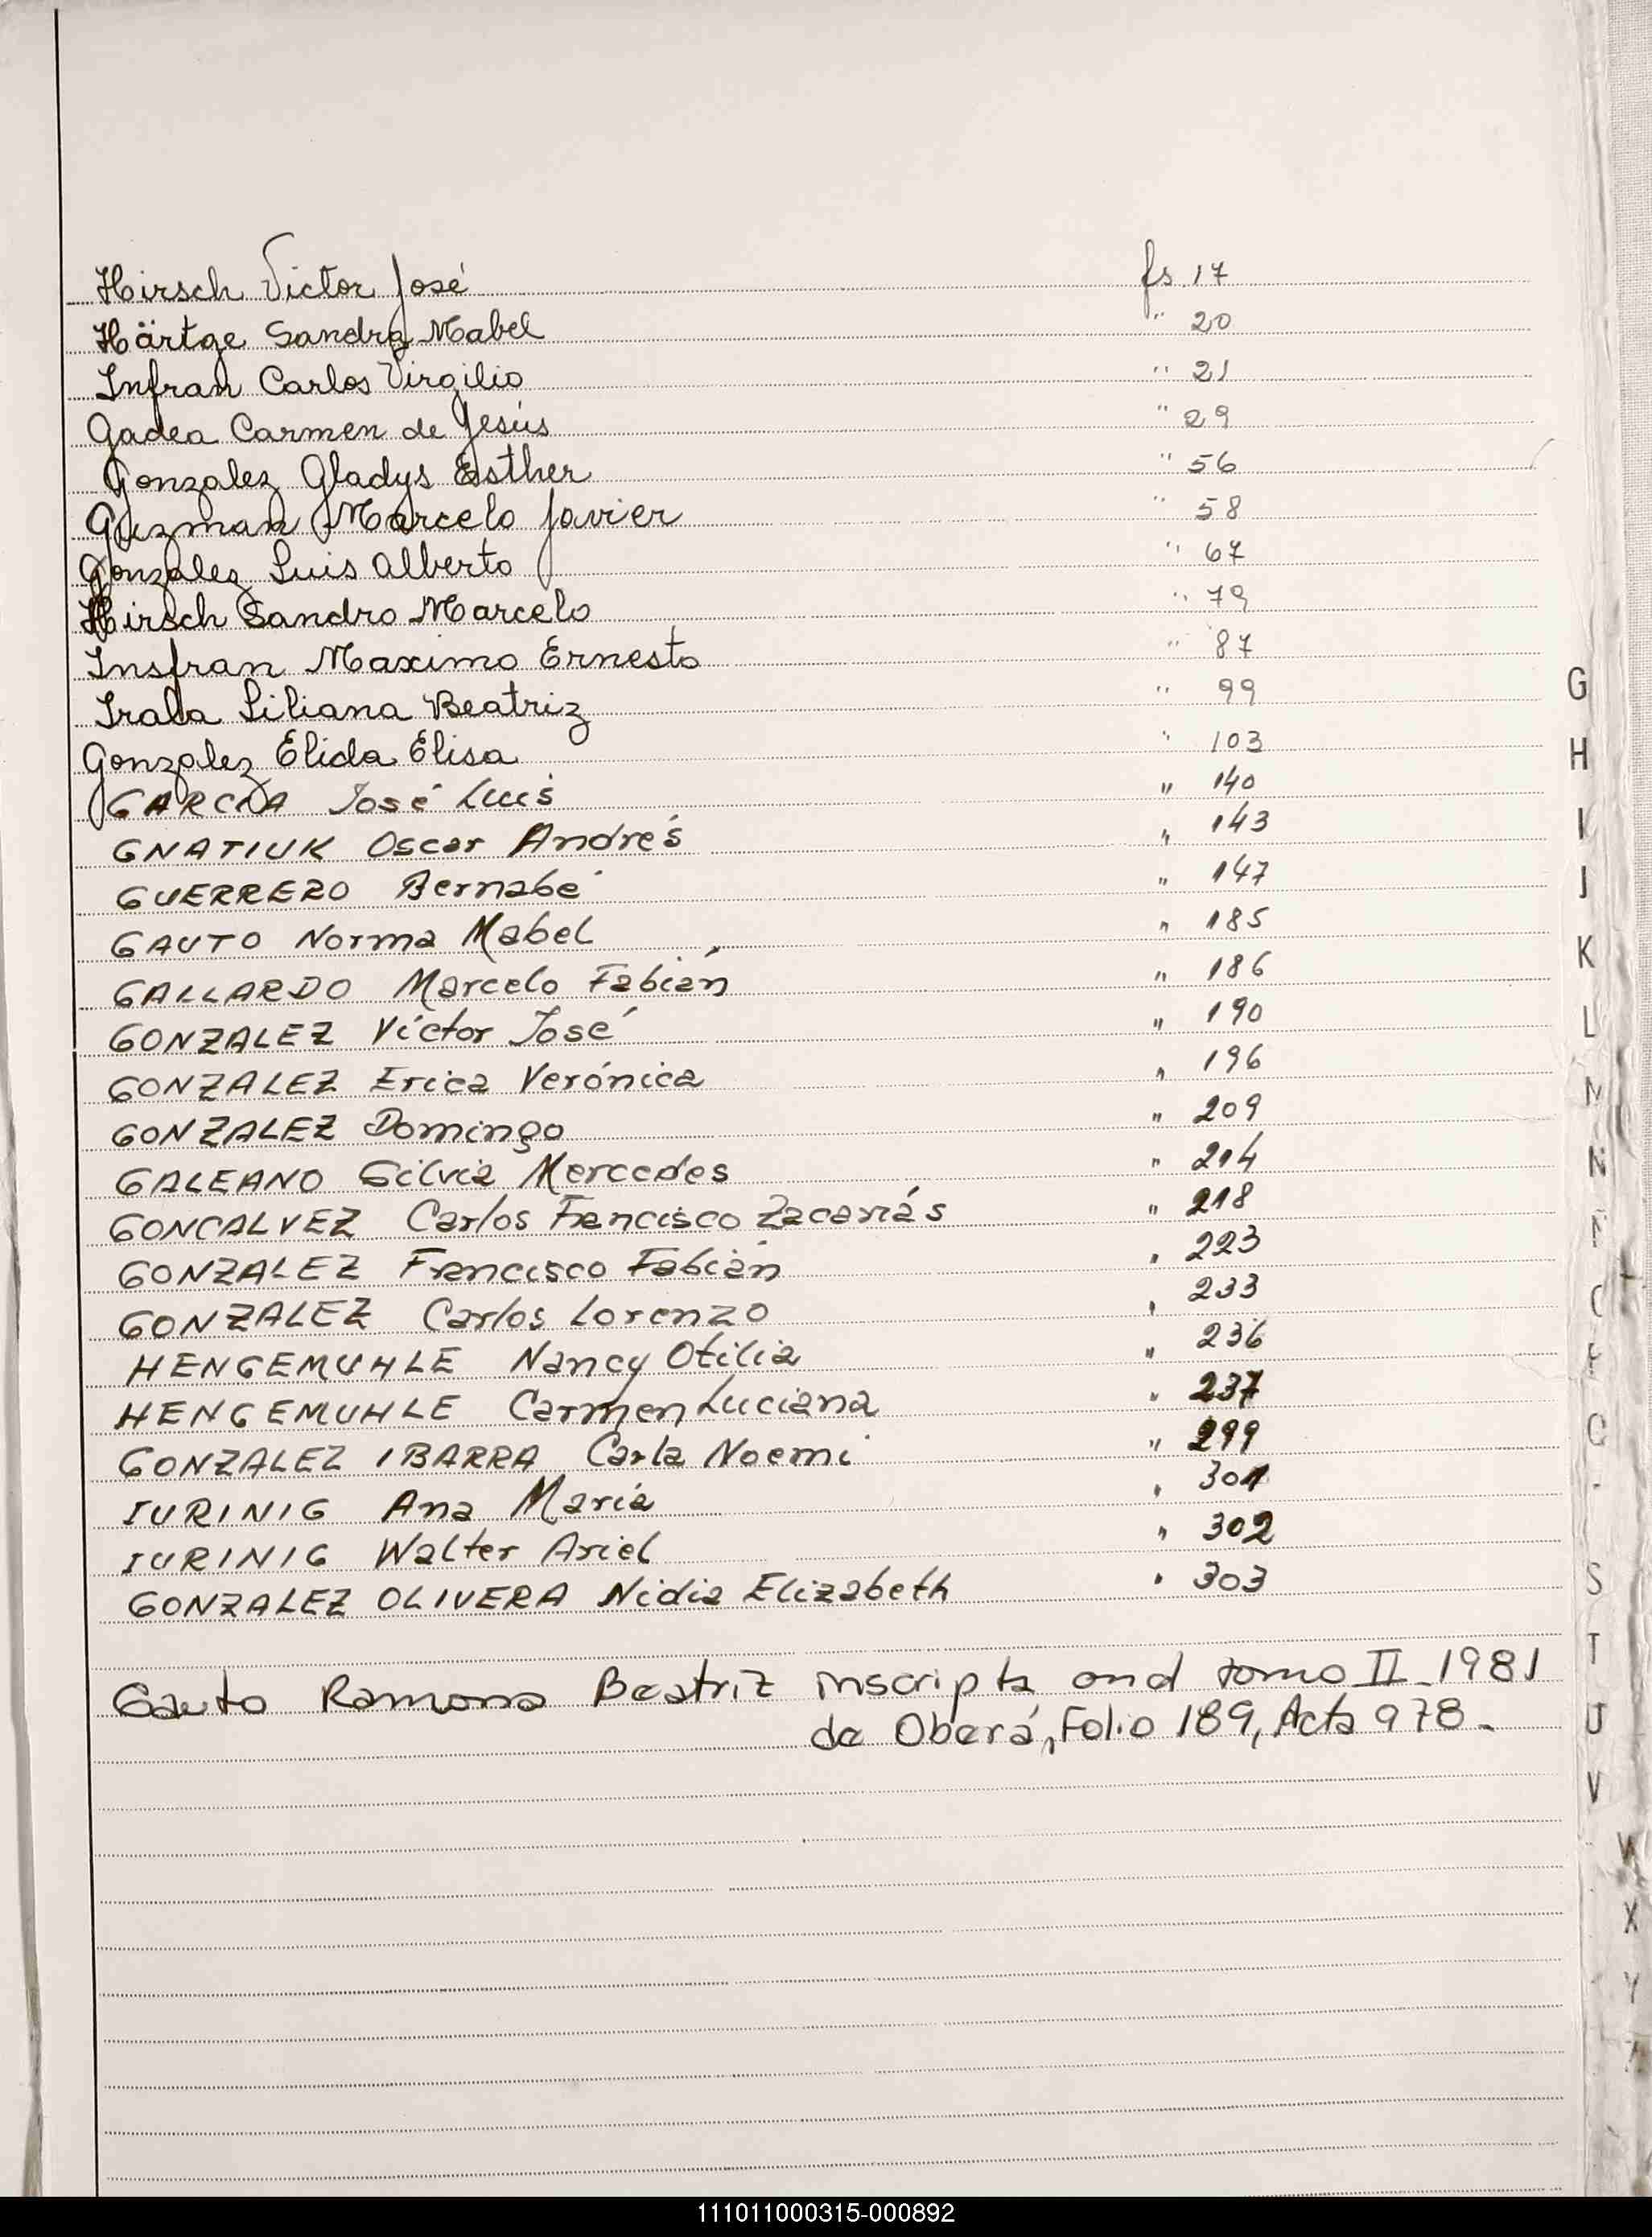 Hirsch Victor José fs. 17
Härtge Sandra Mabel " 20
Infran Carlos Virgilio " 21
Gadea Carmen de Jesús " 29
Gonzalez Gladys Esther " 56
Guzman Marcelo Javier " 58
Gonzalez Luis Alberto " 67
Hirsch Sandro Marcelo " 79
Insfran Maximo Ernesto " 87
Irala Liliana Beatriz " 99
Gonzalez Elida Elisa " 103
GARCIA José Luis " 140
GNATIUK Oscar Andrés " 143
GUERRERO Bernabé " 147
GAUTO Norma Mabel " 185
GALLARDO Marcelo Fabián " 186
GONZALEZ Víctor José " 190
GONZALEZ Erica Verónica " 196
GONZALEZ Domingo " 209
GALEANO Silvia Mercedes " 214
GONCALVEZ Carlos Francisco Zacarías " 218
GONZALEZ Francisco Fabián " 223
GONZALEZ Carlos Lorenzo " 233
HENGEMUHLE Nancy Otilia " 236
HENGEMUHLE Carmen Luciana " 237
GONZALEZ IBARRA Carla Noemi " 299
IURINIG Ana María " 301
IURINIG Walter Ariel " 302
GONZALEZ OLIVERA Nidia Elizabeth " 303
Gauto Ramona Beatriz inscripta tomo II - 1981
de Oberá, Folio 189, Acta 978 -
G
H
I
J
K
L
M
N
Ñ
S
T
U
V
W
X
Y
111011000315-000892